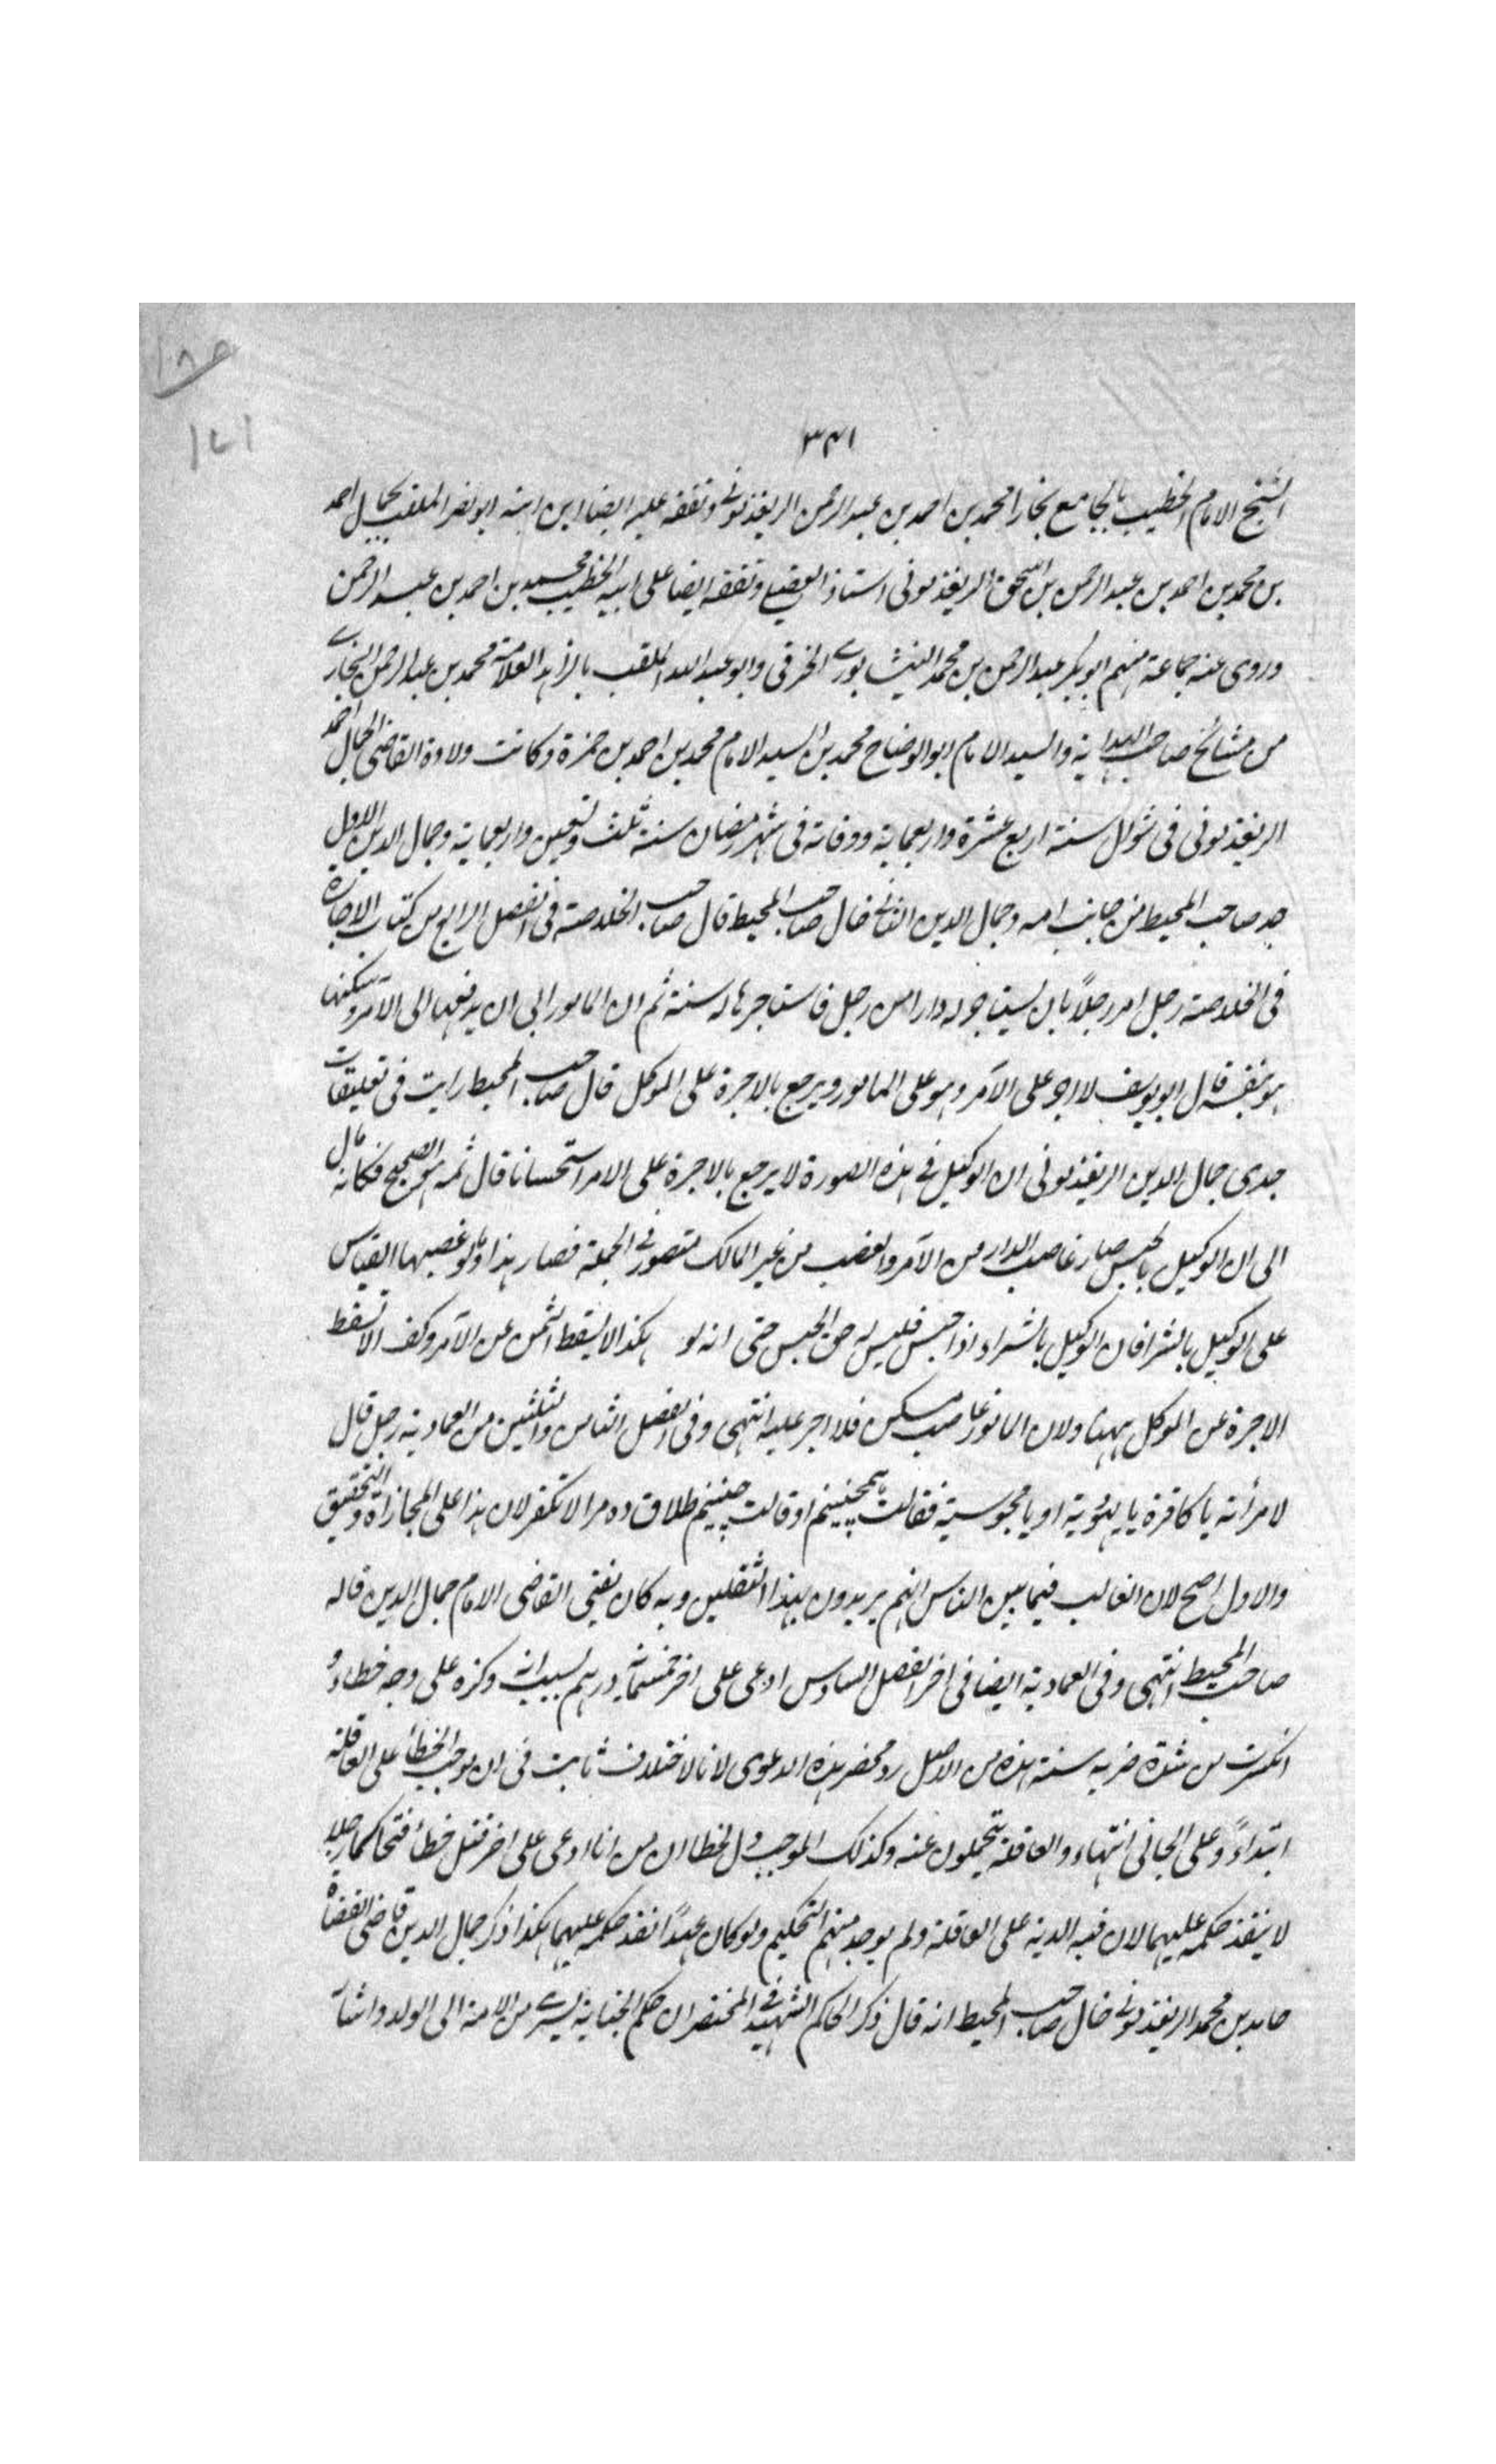 ١٠٨٥
١٤١
٣٤١
الشيخ الامام الخطيب بالجامع بخارا محمد بن احمد بن عبد الرحمن الريغذمونے وتفقه عليه ايضا ابن ابنه ابو نصر الملقب بجمال احمد
بن محمد بن احمد بن عبد الرحمن بن اسحق الريغذمونى استاذ العقيلے وتفقه ايضا على ابيه الخطيب محمد بن احمد بن عبد الرحمن
وروى عنه جماعة منهم ابو بكر عبد الرحمن بن محمد النيشابورے الخرقى وابو عبد الله الملقب بالزاهد العلامة محمد بن عبد الرحمن البخارے
من مشائخ صاحب الهداية والسيد الامام ابو الوضاح محمد بن السيد الامام محمد بن احمد بن حمزة وكانت ولادة القاضى الجمال احمد
الريغذمونى فى شوال سنة اربع عشرة واربعماية ووفاته فى شهر رمضان سنة ثلث وتسعين واربعماية وجمال الدين الاول
جد صاحب المحيط من جانب امه وجمال الدين الثانے خال صاحب المحيط قال صاحب الخلاصة فى الفصل الرابع من كتاب الاجارة
فى الخلاصة رجل امر رجلاً بان يستاجر له دارا من رجل فاستاجرها له سنة ثم ان المامور ابى ان يدفعها الى الآمر وسكنها
هو بنفسه قال ابو يوسف لا اجر على الآمر وهو على المامور ويرجع بالاجرة على الموكل قال صاحب المحيط رايت فى تعليقات
جدى جمال الدين الريغذمونى ان الوكيل فے هذه الصورة لا يرجع بالاجرة على الامر استحسانا قال ثمه هو الصحيح فكانه مال
الى ان الوكيل بالحبس صار غاصب الدار من الآمر والغصب من غير المالك متصور فے الجملة فصار هذا وما لو غصبها القياس
على الوكيل بالشرا فان الوكيل بالشراء اذا حبس فليس له حق الحبس حتى انه لو هكذا لا يسقط الثمن عن الآمر وكف الا تسقط
الاجرة عن الموكل ههنا ولان المامور غاصب سكن فلا اجر عليه انتهى وفى الفصل الثامن والثلثين من العمادية رجل قال
لامرأته يا كافرة يا يهودية او يا مجوسية فقالت همچنينم او قالت چنينم طلاق ده مرا لا تكفر لان هذا على المجازاة والتحقيق
والاول اصح لان الغالب فيما بين الناس انهم يريدون بهذا الثقلين وبه كان يفتى القاضى الامام جمال الدين قاله
صاحب المحيط انتهى وفى العمادية ايضا فى اخر الفصل السادس ادعى على اخر خمسمائة درهم بسبب انه وكزه على وجه خطاء و
انكسرت من شدة ضربه سنة هذه من الاصل رد محضر هذه الدعوى لان الاختلاف ثابت فى ان موجب الخطأ على العاقلة
ابتداءً وعلى الجانى انتهاء والعاقلة يتحملون عنه وكذلك الموجب ول لخطا ان من انا ادعى على اخر قتل خطأ فتحاكما رجلا
لا ينفذ حكمه عليهما لان فيه الدية على العاقلة ولم يوجد منهم التحكيم ولو كان عمدًا نفذ حكمه عليهما هكذا ذكر جمال الدين قاضى القضاة
حامد بن محمد الريغذمونے خال صاحب المحيط انه قال ذكر الحاكم الشهيد فے المختصر ان حكم الجناية يسرے من الامة الى الولد واشار